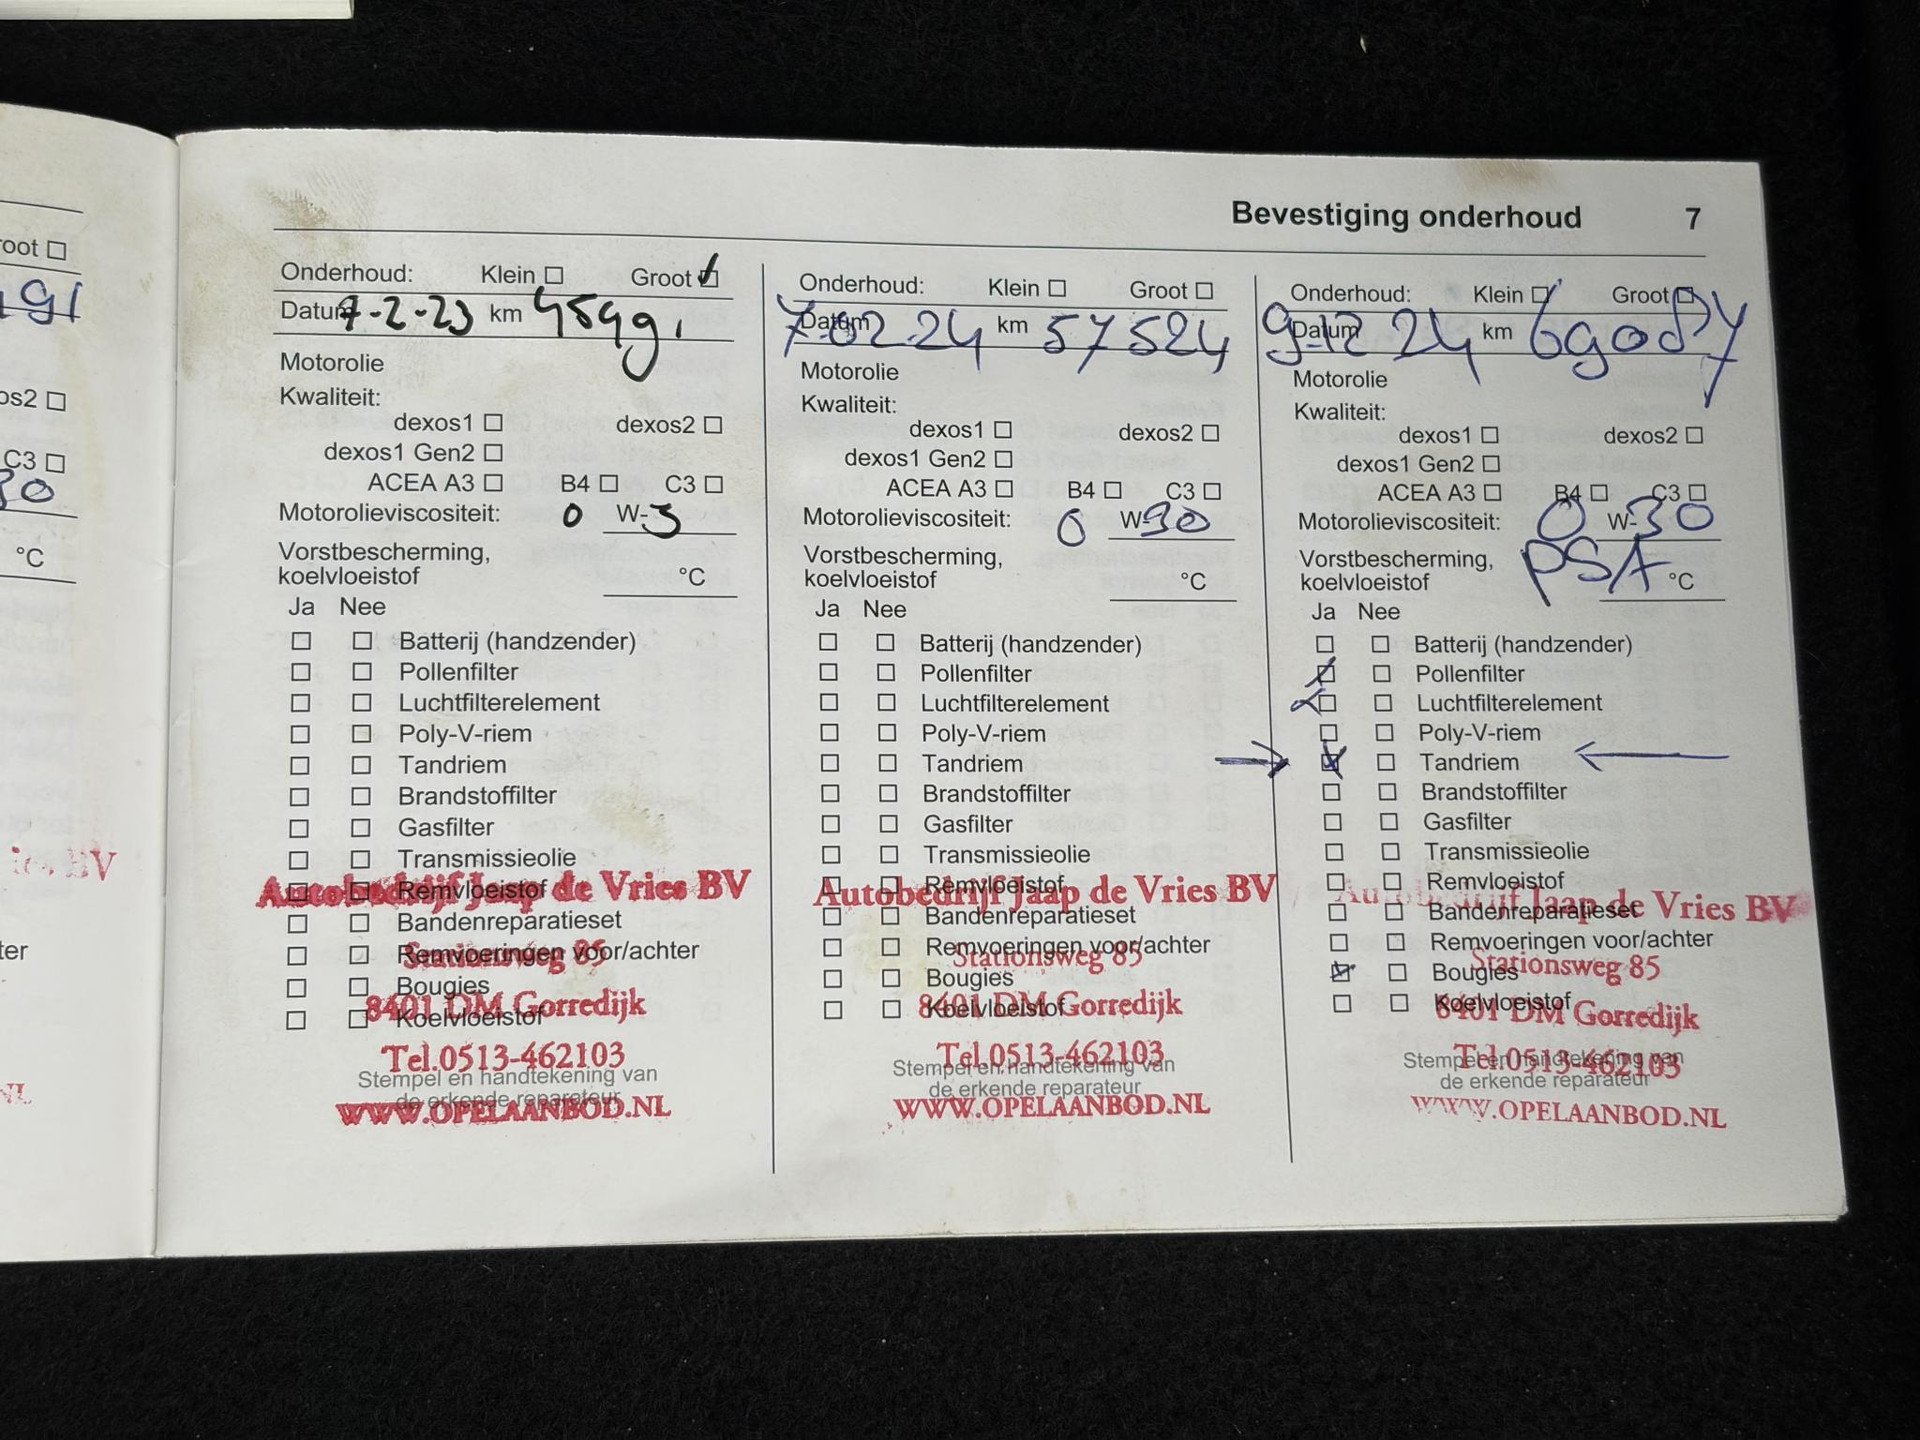 Bevestiging onderhoud 7
root
gi
os2
C3
30
°C
ies BV
ter
NL
Onderhoud: Klein Groot
Datum 7-2-23 km
Motorolie
Kwaliteit:
dexos1 dexos2
dexos1 Gen2
ACEA A3 B4 C3
Motorolieviscositeit: 0 W-3
Vorstbescherming,
koelvloeistof °C
Ja Nee
Batterij (handzender)
Pollenfilter
Luchtfilterelement
Poly-V-riem
Tandriem
Brandstoffilter
Gasfilter
Transmissieolie
Remvloeistof
Autobedrijf Jaap de Vries BV
Bandenreparatieset
Remvoeringen voor/achter
Stationsweg 85
Bougies
8401 DM Gorredijk
Koelvloeistof
Tel.0513-462103
Stempel en handtekening van
de erkende reparateur
WWW.OPELAANBOD.NL
Onderhoud: Klein Groot
Datum 7-02-24 km 57524
Motorolie
Kwaliteit:
dexos1 dexos2
dexos1 Gen2
ACEA A3 B4 C3
Motorolieviscositeit: 0 W-30
Vorstbescherming,
koelvloeistof °C
Ja Nee
Batterij (handzender)
Pollenfilter
Luchtfilterelement
Poly-V-riem
Tandriem
Brandstoffilter
Gasfilter
Transmissieolie
Remvloeistof
Autobedrijf Jaap de Vries BV
Bandenreparatieset
Remvoeringen voor/achter
Stationsweg 85
Bougies
8401 DM Gorredijk
Koelvloeistof
Tel.0513-462103
Stempel en handtekening van
de erkende reparateur
WWW.OPELAANBOD.NL
Onderhoud: Klein Groot
Datum 9-12 24 km
Motorolie
Kwaliteit:
dexos1 dexos2
dexos1 Gen2
ACEA A3 B4 C3
Motorolieviscositeit: 0 W-30
Vorstbescherming, PSA
koelvloeistof °C
Ja Nee
Batterij (handzender)
Pollenfilter
Luchtfilterelement
Poly-V-riem
Tandriem
Brandstoffilter
Gasfilter
Transmissieolie
Remvloeistof
Autobedrijf Jaap de Vries BV
Bandenreparatieset
Remvoeringen voor/achter
Stationsweg 85
Bougies
Koelvloeistof
8401 DM Gorredijk
Tel.0513-462103
Stempel en handtekening van
de erkende reparateur
WWW.OPELAANBOD.NL